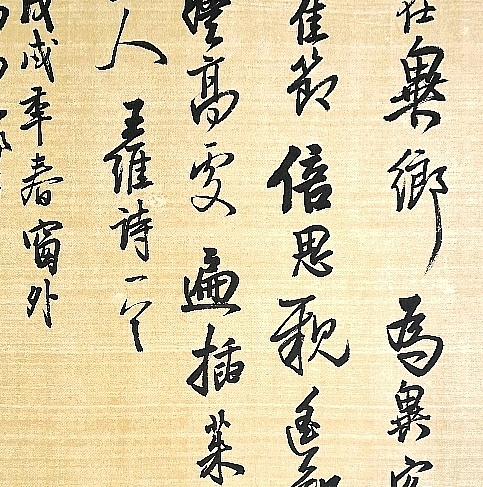 在異鄉為異客
佳節倍思親遙知
登高處遍插茱
人 王維詩一首
戊戌年春窗外